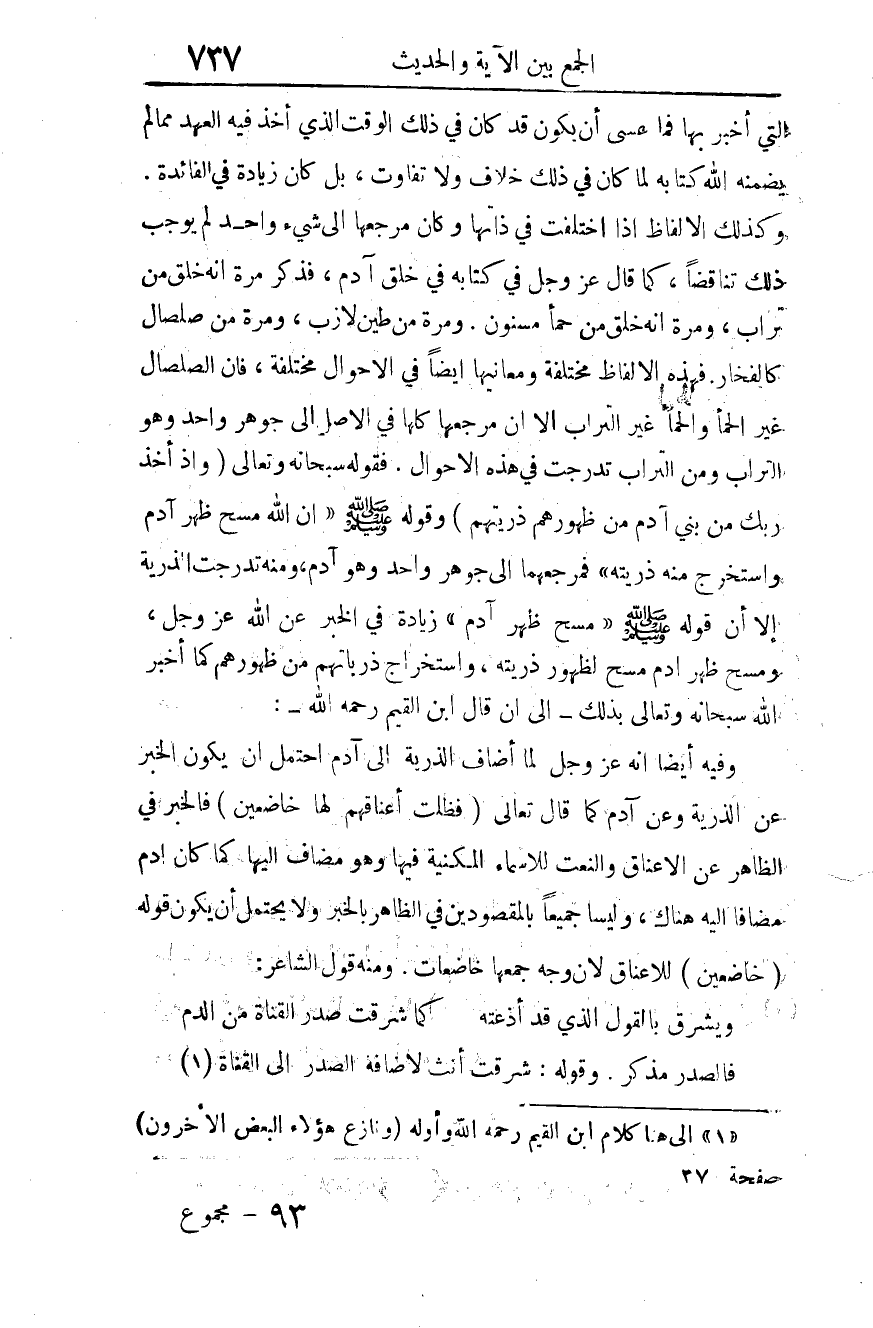 الجمع بين الآية والحديث ٧٣٧
التي أخبر بها فما عسى أن يكون قد كان في ذلك الوقت الذي أخذ فيه العهد ممالم
يضمنه الله كتابه لما كان في ذلك خلاف ولا تفاوت ، بل كان زيادة في الفائدة .
وكذلك الالفاظ اذا اختلفت في ذاتها وكان مرجعها الى شيء واحـد لم يوجب
ذلك تناقضاً ، كما قال عز وجل في كتابه في خلق آدم ، فذكر مرة انه خلق من
تراب ، ومرة انه خلق من حمأ مسنون . ومرة من طين لازب ، ومرة من صلصال
كالفخار . فهذه الالفاظ مختلفة ومعانيها ايضاً في الاحوال مختلفة ، فان الصلصال
غير الحمأ والحمأ غير التراب الا ان مرجعها كلها في الاصل الى جوهر واحد وهو
التراب ومن التراب تدرجت في هذه الاحوال . فقوله سبحانه وتعالى ( واذ أخذ
ربك من بني آدم من ظهورهم ذريتهم ) وقوله ﷺ « ان الله مسح ظهر آدم
واستخرج منه ذريته » فمرجعهما الى جوهر واحد وهو آدم، ومنه تدرجت الذرية
إلا أن قوله ﷺ « مسح ظهر آدم » زيادة في الخبر عن الله عز وجل ،
ومسح ظهر ادم مسح لظهور ذريته ، واستخراج ذرياتهم من ظهورهم كما أخبر
الله سبحانه وتعالى بذلك ــ الى ان قال ابن القيم رحمه الله ــ :
وفيه أيضا انه عز وجل لما أضاف الذرية الى آدم احتمل ان يكون الخبر
عن الذرية وعن آدم كما قال تعالى ( فظلت أعناقهم لها خاضعين ) فالخبر في
الظاهر عن الاعناق والنعت للاسماء المكنية فيها وهو مضاف اليها كما كان ادم
مضافا اليه هناك ، وليسا جميعاً بالمقصودين في الظاهر بالخبر ولا يحتمل أن يكون قوله
( خاضعين ) للاعناق لان وجه جمعها خاضعات . ومنه قول الشاعر :
ويشرق بالقول الذي قد أذعته كما شرقت صدر القناة من الدم
فالصدر مذكر . وقوله : شرقت أنث لاضافة الصدر الى القناة (١)
«١» الى هنا كلام ابن القيم رحمه الله وأوله (ونازع هؤلاء البعض الأخرون)
صفحة ٢٧
٩٣ – مجموع